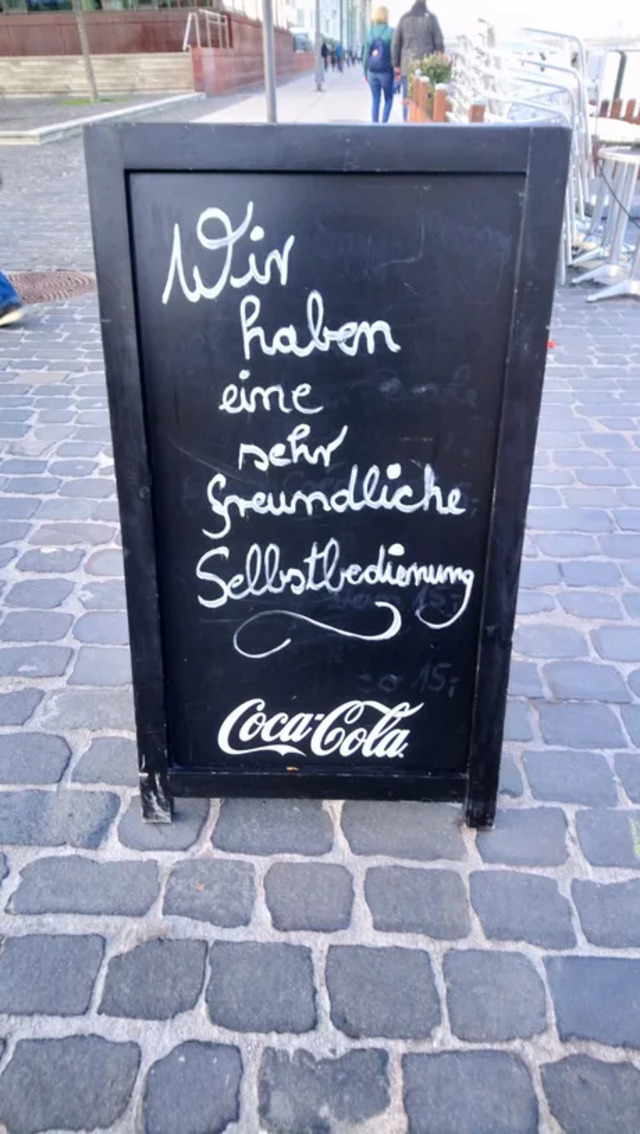 Wir
haben
eine
sehr
freundliche
Selbstbedienung
Coca-Cola